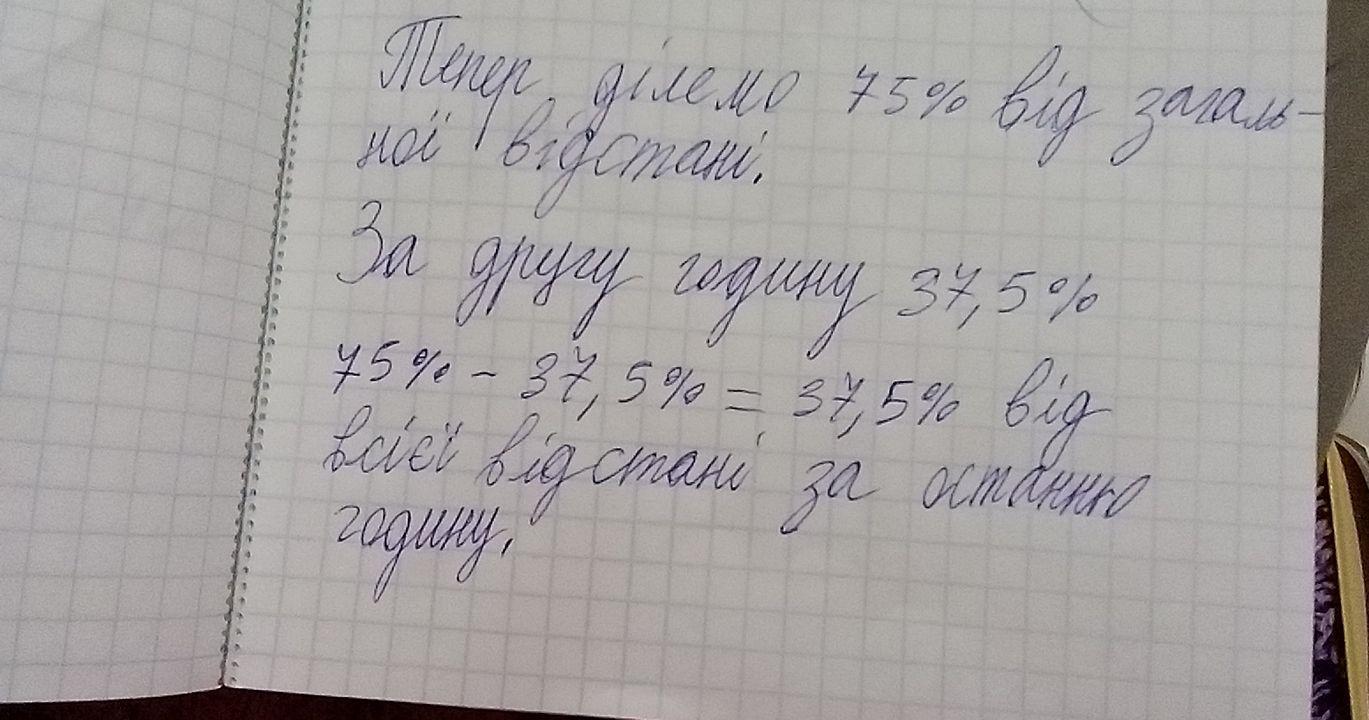 Тепер ділемо 75% від загаль-
ної відстані.
За другу годину 37,5%
75% - 37,5% = 37,5% від
всієї відстані за останню
годину.